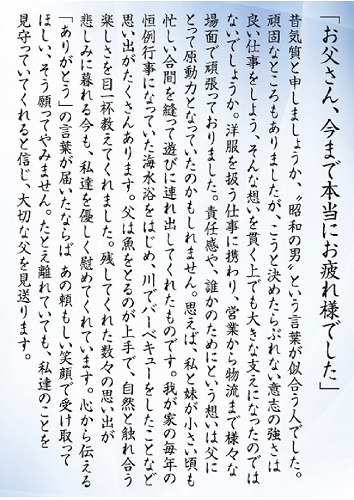 「お父さん、今まで本当にお疲れ様でした」
昔気質と申しましょうか、〝昭和の男〟という言葉が似合う人でした。
頑固なところもありましたが、こうと決めたらぶれない意志の強さは
良い仕事をしよう、そんな想いを貫く上でも大きな支えになったのでは
ないでしょうか。洋服を扱う仕事に携わり、営業から物流まで様々な
場面で頑張っておりました。責任感や、誰かのためにという想いは父に
とって原動力となっていたのかもしれません。思えば、私と妹が小さい頃も
忙しい合間を縫って遊びに連れ出してくれたものです。我が家の毎年の
恒例行事になっていた海水浴をはじめ、川でバーベキューをしたことなど
思い出がたくさんあります。父は魚をとるのが上手で、自然と触れ合う
楽しさを目一杯教えてくれました。残してくれた数々の思い出が
悲しみに暮れる今も、私達を優しく慰めてくれています。心から伝える
「ありがとう」の言葉が届いたならば あの頼もしい笑顔で受け取って
ほしい、そう願ってやみません。たとえ離れていても、私達のことを
見守っていてくれると信じ、大切な父を見送ります。